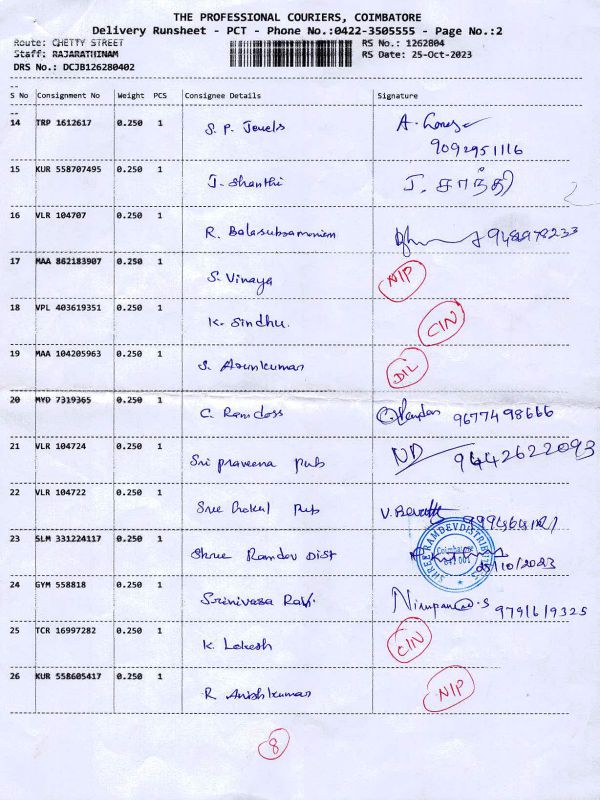 THE PROFESSIONAL COURIERS, COIMBATORE
Delivery Runsheet - PCT - Phone No.:0422-3505555 - Page No.:2
Route: CHETTY STREET RS No.: 1262804
Staff: RAJARATHINAM RS Date: 25-Oct-2023
DRS No.: DCJB126280402
S No Consignment No Weight PCS Consignee Details Signature
14 TRP 1612617 0.250 1 S. P. Jewels A.
9092951116
15 KUR 558707495 0.250 1 J. Shanthi J. சாந்தி
16 VLR 104707 0.250 1 R. Balasubramoniam
17 MAA 862183907 0.250 1 S. Vinaya NIP
18 VPL 403619351 0.250 1 K. Sindhu. CIN
19 MAA 104205963 0.250 1 S. Arunkumar DIL
20 MYD 7319365 0.250 1 C. Ramdoss 9677498666
21 VLR 104724 0.250 1 Sri praveena pub ND 9442622093
22 VLR 104722 0.250 1 Sree pub V.
23 SLM 331224117 0.250 1 Shree Ramdev Dist SHREE RAMDEV DISTRIBUTORS Coimbatore 641 001
/10/2023
24 GYM 558818 0.250 1 Srinivasa 9791619325
25 TCR 16997282 0.250 1 K. Lokesh CIN
26 KUR 558605417 0.250 1 R Anishkumar NIP
8